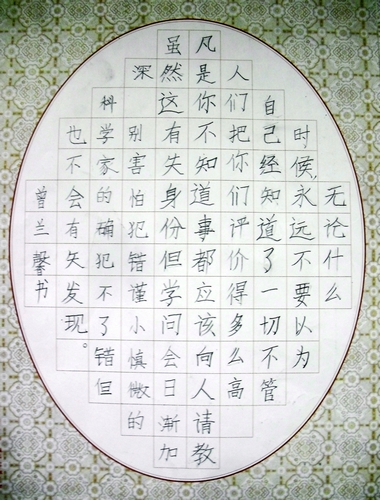 无论什么
时候,永远不要以为
自己经知道了一切不管
人们把你们评价得多么高
凡是你不知道事都应该向人请教
虽然这有失身份但学问会日渐加
深 别害怕犯错谨小慎微的
科学家的确犯不了错但
也不会有矢发现。
曾兰馨书